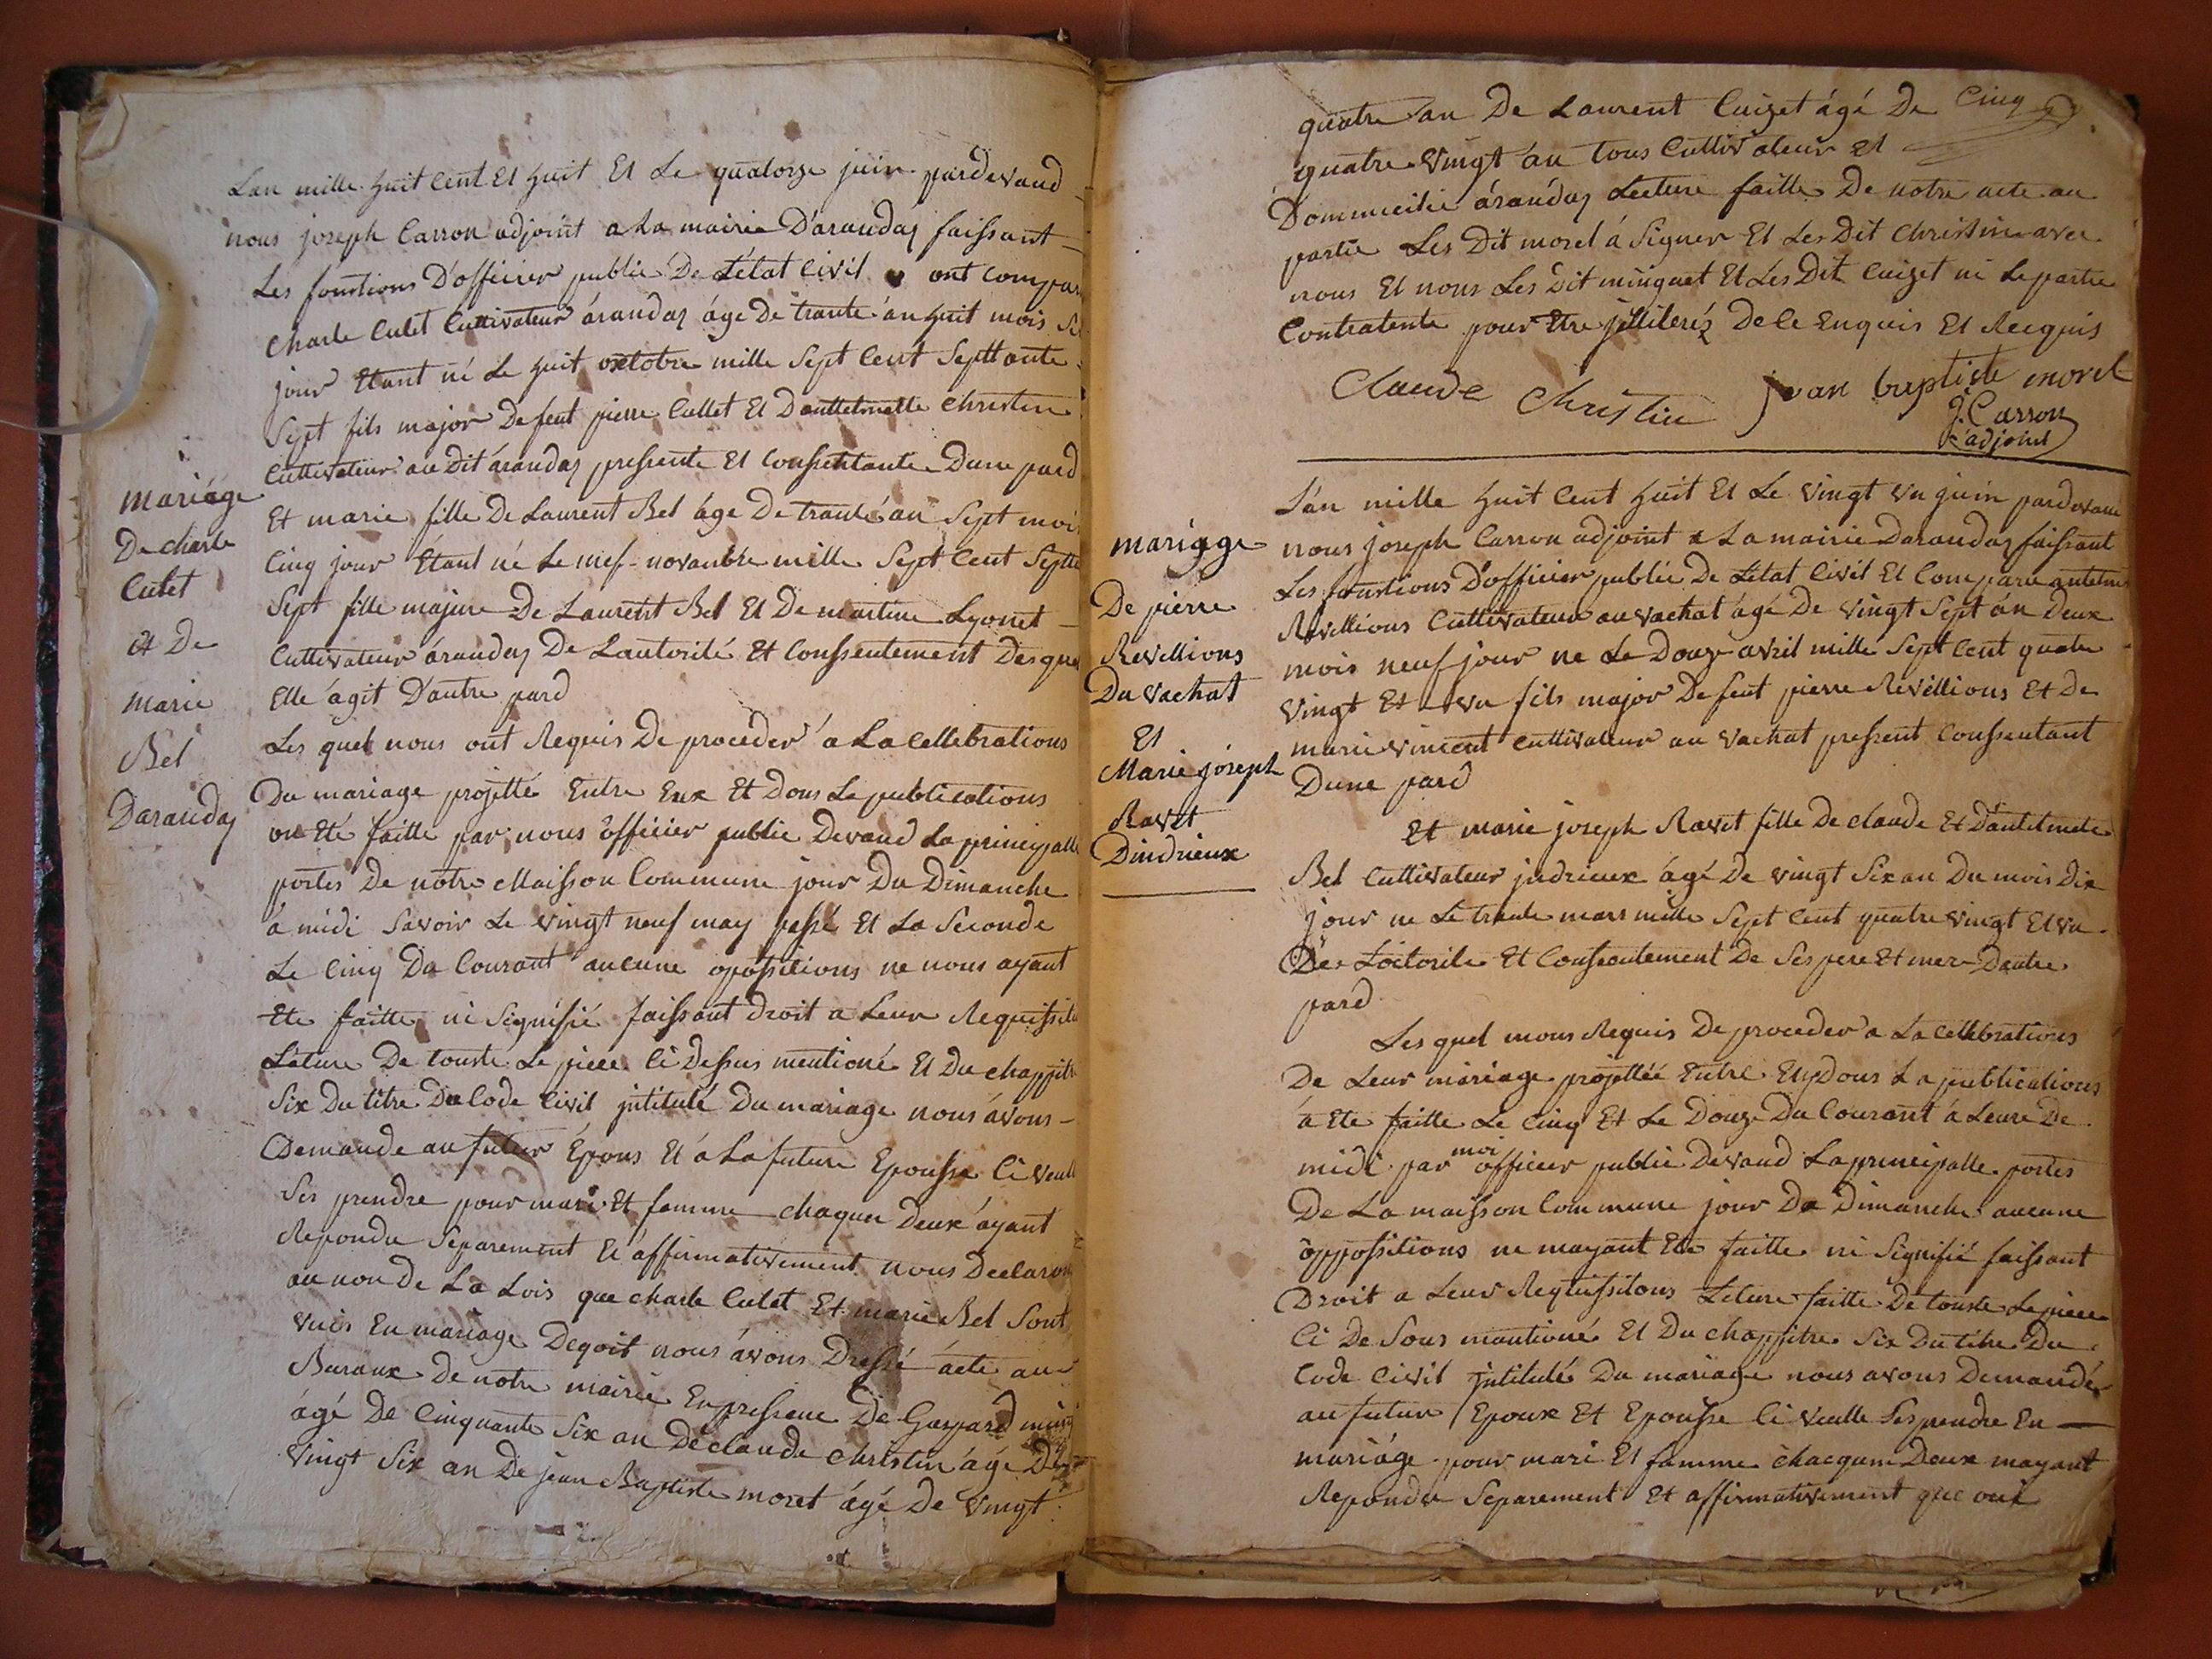 Lan mille huit Cent Et huit Et Le quatorze juin pardevand
nous joseph Carron adjoint a La mairie D'arandaz faissant
Les fonctions D'officier public De L'état Civil ont compar
Charle Culet Cultivateur árandaz áge De trante án huit mois
jour Etant né Le huit oxtobre mille Sept Cent Septtante
Sept fils major De feut pierre Cullet Et Danttelmette Christin
Cultivateur au Dit árandaz pressente Et Conssentante Dune pard
Et marie fille De Laurent Bel áge De trante án Sept moi
Cinq jour Étant né Le nief novanbre mille Sept Cent Septt
Sept fille majure De Laurent Bel Et De martine Lyonet
Cultivateur árandaz De Lautorité Et Conssentement Desque
Elle ágit D'autre pard
mariáge
De charle
Culet
et De
marie
Bel
Darandaz
Les quel nous ont Requis De proceder á La Cellebrations
Du mariage projetté Entre Eux Et Dons Le publications
on Eté faitte par nous officier public Devand La principalle
portes De notre Maisson Commune jour Du Dimanche
á midi Savoir Le vingt neuf may passé Et La Seconde
Le Cinq Du Courant aucune opossitions ne nous ayant
Ete faitte ni Signifié faissant droit a Leur Requissit
Léture De touste Le piece Ci Dessus mentioné Et Du chappitr
Six Du titre Du Code Civil jntitulé Du mariage nous ávons
Demande au futur Épous Et á La future Epousse Ci veull
Ses prendre pour mari Et famme chaquen Deux áyant
Repondu Separement Et affirmativement nous Declaron
au non De La Lois que charle Culet Et marie Bel Sont
unis En mariage Deqoit nous ávons Dressé ácte au
Buraux De notre mairie En pressence De Gaspard
ágé De Cinquante Six an De Claude Christin ágé De
vingt Six an De jean Baptiste moret ágé De vingt
quatre an De Laurent Cuizet ágé De Cinq
quatre vingt án tous Cultivateur Et
Dommicilié árandaz Lecture faitte De notre acte au
partie Les Dit morel á Signer Et Les Dit Christin avec
nous Et nous Les Dit minguet Et Les Dit Cuizet ni Le partie
Contratente pour Etre jllileréz De Ce Enquis Et Recquis
Claude Christin Jean baptiste morel
J. Carron
adjoint
L'án mille huit Cent huit Et Le vingt un juin pardevant
nous joseph Carron adjoint a La mairie Darandaz faissant
Les fonctions D'officier public De L'etat Civil Et Comparu
Revillions Cultivateur au vachat ágé De vingt Sept án Deux
mois neuf jour ne Le Douze avril mille Sept Cent quatre
vingt Et un fils major De feut pierre Révillions Et De
marie vincent Cultivateur au vachat pressent Conssentant
Dune pard
mariage
De pierre
Revillions
Du vachat
Et
Marie joseph
Ravet
Dindrieux
Et marie joseph Ravet fille De claude Et D'antelmete
Bel Cultivateur jndrieux ágé De vingt Six an Du mois Dix
jour ne Le trante mars mille Sept Cent quatre vingt Et un
De Loctorite Et Conssentement De Ses pere Et mere Dautre
pard
Les quel mons Requis De proceder á La Cellebrations
De Leur mariage projettée Entre Eux Dons La publications
á Ete faitte Le Cinq Et Le Douze Du Courant á Leure De
midi par moi officier public Devand La principalle portes
De La maisson Commune jour Du Dimanche aucune
oppossitions ne mayant Ete faitte ni Signifié faissant
Droit a Leur Requissitons Léture faitte De touste Le piece
Ci De Sous mantioné Et Du chappitre Six Du titre Du
Code Civil jntitulé Du mariage nous avons Demandé
au futur Epoux Et Epousse Ci veulle Ses prendre En
mariáge pour mari Et famme chacqun Deux mayant
Repondu Separement Et affirmativement que oui